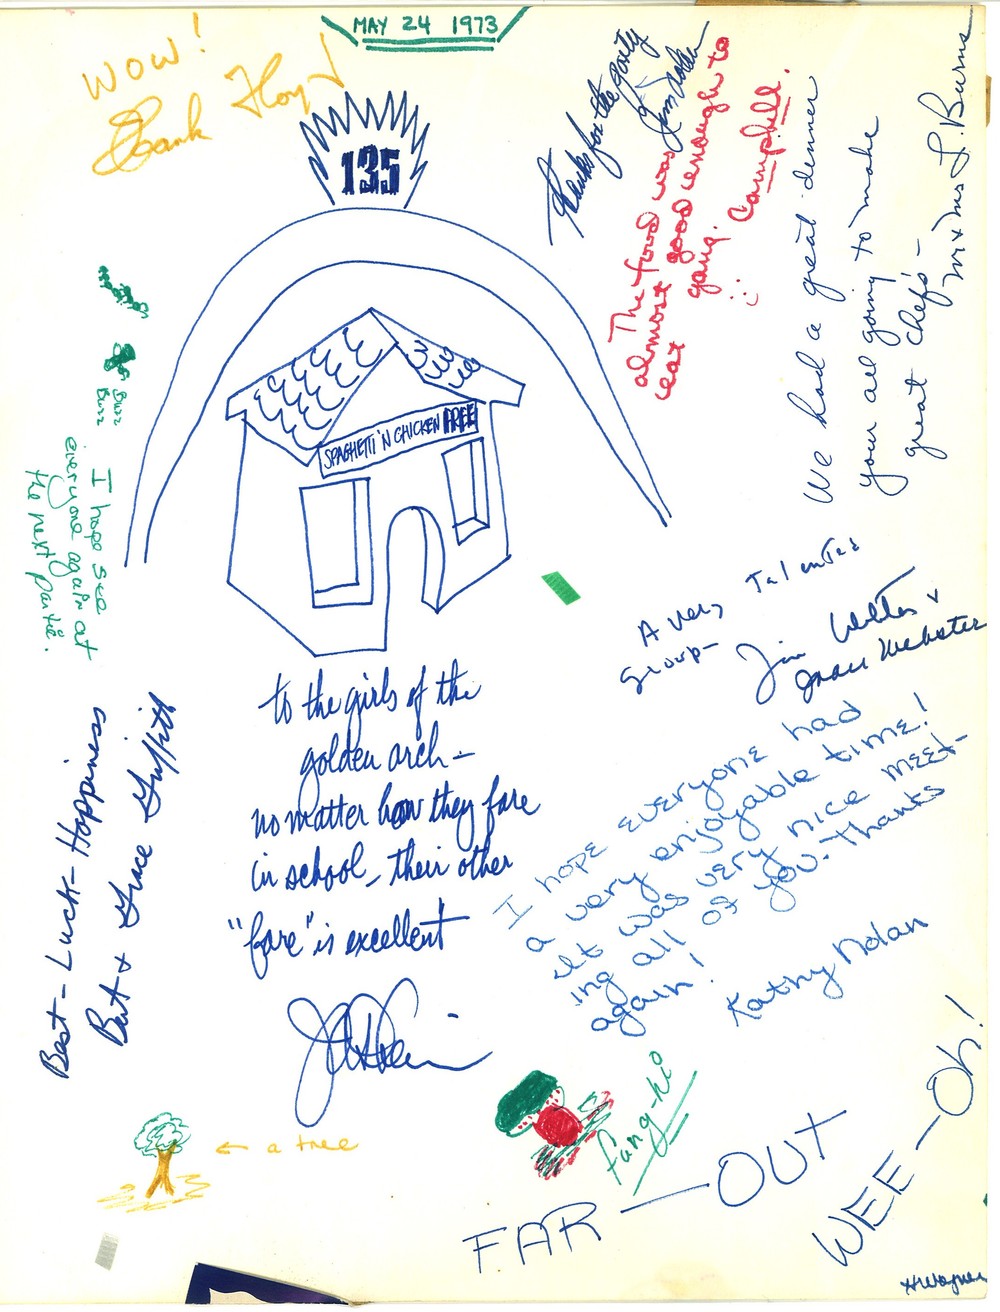 MAY 24 1973
WOW!
Hank Floyd
135
SPAGHETTI 'N CHICKEN FREE
Thanks for the party
Jim Nolan
The food was
almost good enough to
eat gang. Campbell.
We had a great dinner
your all going to make
great chefs -
Mr + Mrs L. Burns
Buzz
Buzz
I hope see
everyone again at
the next partié.
A very Talented
group -
Jim Webster +
Grace Webster
to the girls of the
golden arch -
no matter how they fare
in school, their other
"fare" is excellent
I hope everyone had
a very enjoyable time!
It was very nice meet-
ing all of you. Thanks
again!
Kathy Nolan
Best - Luck - Happiness
Bert + Grace Griffith
← a tree
fung-hi
FAR - OUT
WEE - Oh!
H Wagner